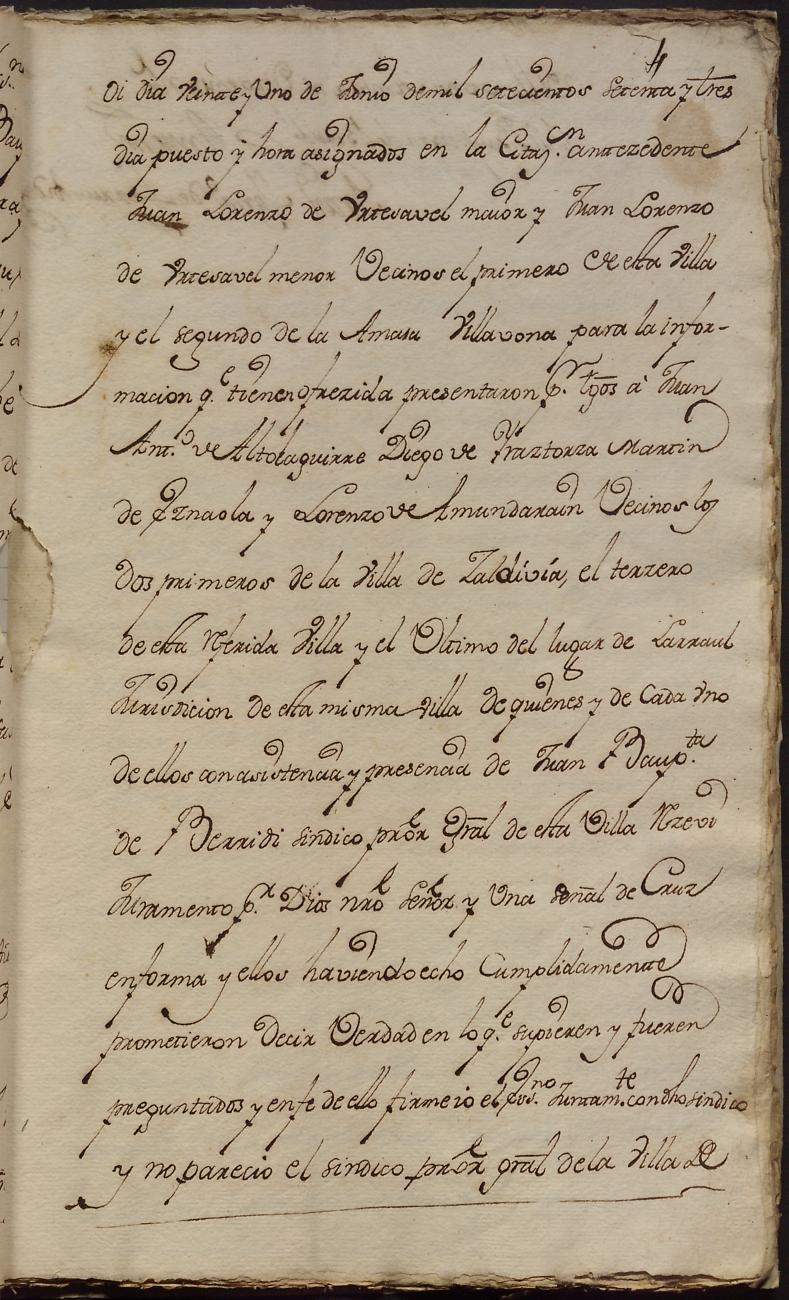 4
Oi dia veinte y Uno de Junio de mil setecientos setenta y tres
dia puesto y hora asignados en la Citaz.on antezedente
Juan Lorenzo de Vrtesavel maior y Juan Lorenzo
de Vrtesavel menor Vecinos el primero de esta Villa
y el segundo de la Amasa Villavona para la infor-
macion q.e tienen ofrezida presentaron p.r tgos à Juan
Ant.o de Altolaguirre Diego de Yraztorza Martin
de Yznaola y Lorenzo de Amundarain Vecinos los
dos primeros de la Villa de Zaldivia, el terzero
de esta referida Villa y el Ultimo del lugar de Larraul
Jurisdicion de esta misma villa de quienes y de Cada Vno
de ellos con asistencia y presencia de Juan Baup.ta
de Berridi sindico pror Gral de esta Villa Rezevi
Juramento p.r Dios nro Señor y Una señal de Cruz
en forma y ellos haviendo echo Cumplidamente
prometieron Decir Verdad en lo q.e supieren y fueren
preguntados y en fe de ello firme io el Ess.no Juntam.te con dho sindico
y no parecio el sindico pror gral de la Villa de